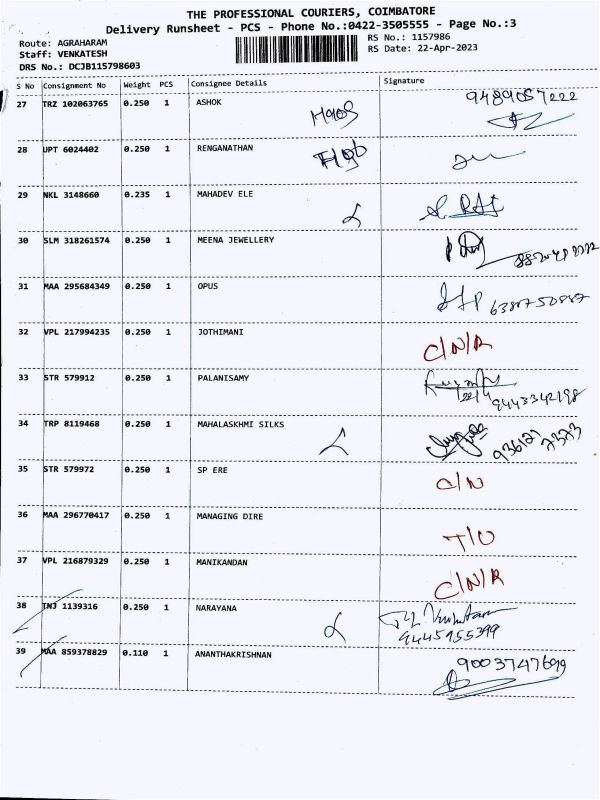 THE PROFESSIONAL COURIERS, COIMBATORE
Delivery Runsheet - PCS - Phone No.:0422-3505555 - Page No.:3
Route: AGRAHARAM
Staff: VENKATESH
DRS No.: DCJB115798603
RS No.: 1157986
RS Date: 22-Apr-2023
S No Consignment No Weight PCS Consignee Details Signature
27 TRZ 102063765 0.250 1 ASHOK 9489057222
28 UPT 6024402 0.250 1 RENGANATHAN
29 NKL 3148660 0.235 1 MAHADEV ELE
30 SLM 318261574 0.250 1 MEENA JEWELLERY
31 MAA 295684349 0.250 1 OPUS
32 VPL 217994235 0.250 1 JOTHIMANI C/N/R
33 STR 579912 0.250 1 PALANISAMY 9443342198
34 TRP 8119468 0.250 1 MAHALASKHMI SILKS
35 STR 579972 0.250 1 SP ERE C/N
36 MAA 296770417 0.250 1 MANAGING DIRE
37 VPL 216879329 0.250 1 MANIKANDAN C/N/R
38 TNJ 1139316 0.250 1 NARAYANA 9445955399
39 MAA 859378829 0.110 1 ANANTHAKRISHNAN 9003747699